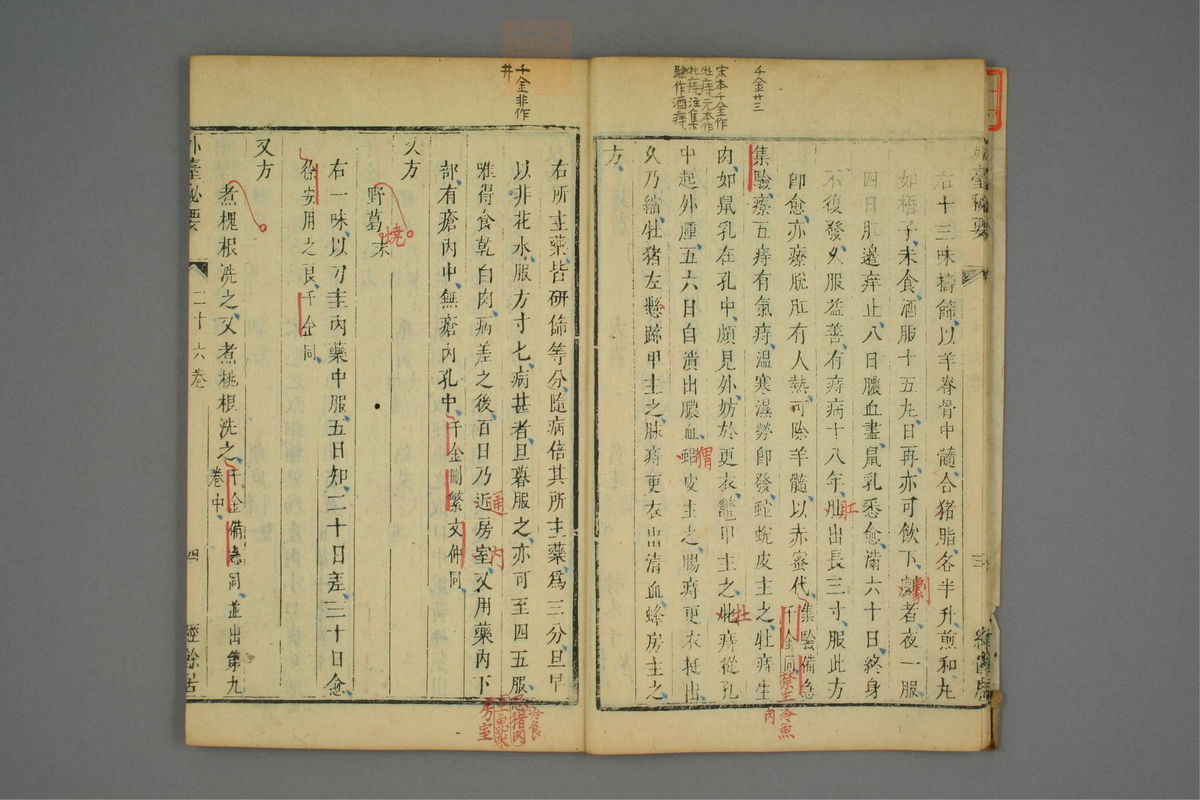 千金廿三
宋本千金作
牡痔元本作
牝痔注集
驗作酒痔
右十三味擣篩以羊脊骨中髓合猪脂各半升煎和丸
如梧子未食酒服十五丸日再亦可飲下劇者夜一服
四日肛邊痒止八日膿血盡鼠乳悉愈滿六十日終身
不復發久服益善有痔病十八年肛出長三寸服此方
即愈亦療脫肛有人熱可除羊髓以赤蜜代
集驗備急
千金同
禁生冷魚
肉
集驗療五痔有氣痔溫寒濕勞即發蛇蛻皮主之牡痔生
肉如鼠乳在孔中頗見外妨於更衣鼈甲主之牝痔從孔
中起外腫五六日自潰出膿血猬皮主之腸痔更衣挺出
久乃縮牡猪左懸蹄甲主之脉痔更衣出清血蜂房主之
方
劇
肛
牡
猬
外臺秘要
三
經餘居
千金非作
井
右所主藥皆研篩等分隨病倍其所主藥爲三分旦早
以非花水服方寸七病甚者旦暮服之亦可至四五服
唯得食乾白肉病差之後百日乃近房室又用藥內下
部有瘡內中無瘡內孔中
千金刪繁文仲同
冷食
忌猪肉
生魚菜
房室
通
內
又方
野葛
末
燒
右一味以刀圭內藥中服五日知二十日差三十日愈
徐安用之良千金同
又方
煮槐根洗之又煮桃根洗之
千金備急同並出第九
卷中
外臺秘要
二十六卷
四
經餘居